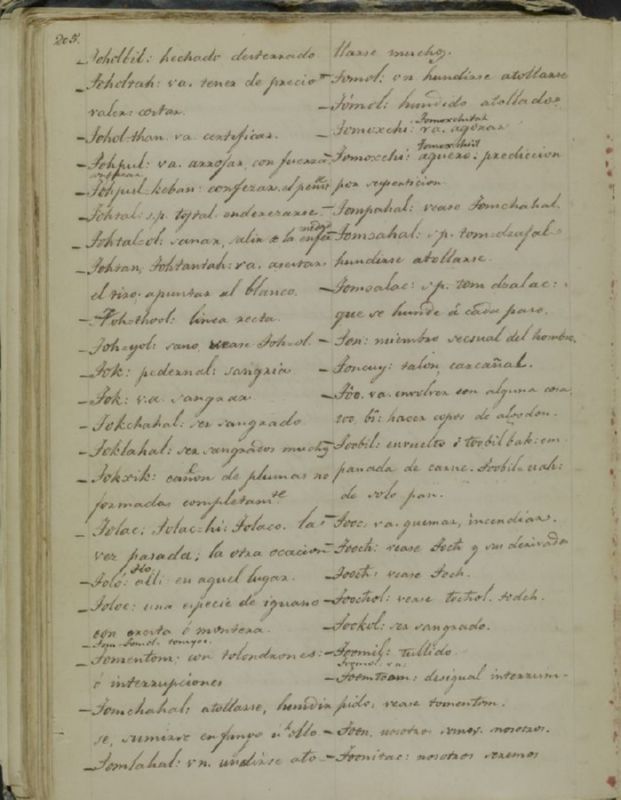 205.
Toholbil: hechado desterrado
Toholtah: va. tener de precio
valer: cortar.
Tohol-than. va. certificar.
Tohpul: va. arrojar, con fuerza
Tohpul-keban: confezar el
Tohtal: s.p. toptal enderezarse.
Tohtal-ol: sanar, salir de la
Tohtan, Tohtantah: va. acertar
el tiro. apuntar al blanco.
Toh-thool: linea recta.
Toh-yol: sano, vease Toh-ol.
Tok: pedernal: sangria
Tok: v.a. sangrar
Tokchahal. ser sangrado
Toklahal: ser sangrados muchos
Tokxik: cañon de plumas no
formadas completamte.
Tolac: Tolac-hi: Tolaco. la
vez pasada; la otra ocacion
Toló: alli: en aquel lugar.
Toloc: una especie de iguano
con cresta ó montera.
Tomentom: con tolondrones:
ó interrupciones
Tomchahal: atollarse, hundir
se, sumirse en fango
Tomlahal: vn. undirse ato-
llarse muchos.
Tomol: vn hundirse atollarse
Tómol: hundido atollado
Tomoxchi: va. agorar
Tomoxchi: aguero: prediccion
por supersticion.
Tompahal: vease Tomchahal.
Tomzahal: s.p. tom-dzafal
hundirse atollarse.
Tomzalac: s.p. tom dzalac:
que se hunde á cada paso.
Ton: miembro secsual del hombre.
Toncuy: talon, carcañal.
Tóo. va. envolver con alguna cosa
too, bi: hacer copos de algodon.
Toobil: envuelto ó toobil bak: em
panada de carne. Toobil-uah:
de solo pan.
Tooc. va. quemar, incendiar.
Tooch: vease Toch y sus derivados
Tooch: vease Toch.
Toochol: vease tochol. todch.
Tookol: ser sangrado.
Toomil: tullido
Toomtoom: desigual interrum-
pido; vease tomentom.
Toon. nosotros somos. nosotros.
Toonitac: nosotros seremos